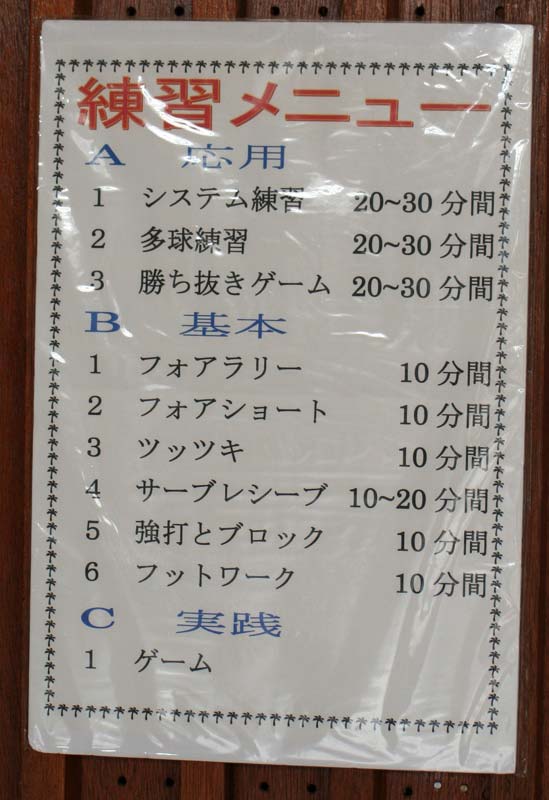 練習メニュー
A 応用
1 システム練習 20~30 分間
2 多球練習 20~30 分間
3 勝ち抜きゲーム 20~30 分間
B 基本
1 フォアラリー 10 分間
2 フォアショート 10 分間
3 ツッツキ 10 分間
4 サーブレシーブ 10~20 分間
5 強打とブロック 10 分間
6 フットワーク 10 分間
C 実践
1 ゲーム